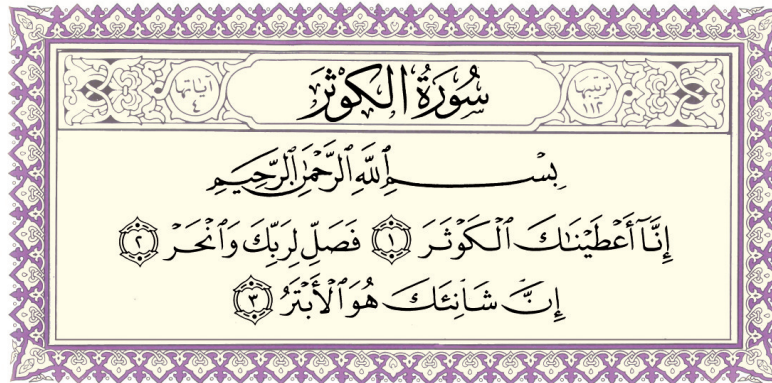 ترتيبها ١١٢ سُورَةُ الكَوْثَرَ آيَاتها ٤
بِسْمِ ٱللَّهِ ٱلرَّحْمَٰنِ ٱلرَّحِيمِ
إِنَّآ أَعْطَيْنَٰكَ ٱلْكَوْثَرَ ١ فَصَلِّ لِرَبِّكَ وَٱنْحَرْ ٢
إِنَّ شَانِئَكَ هُوَ ٱلْأَبْتَرُ ٣